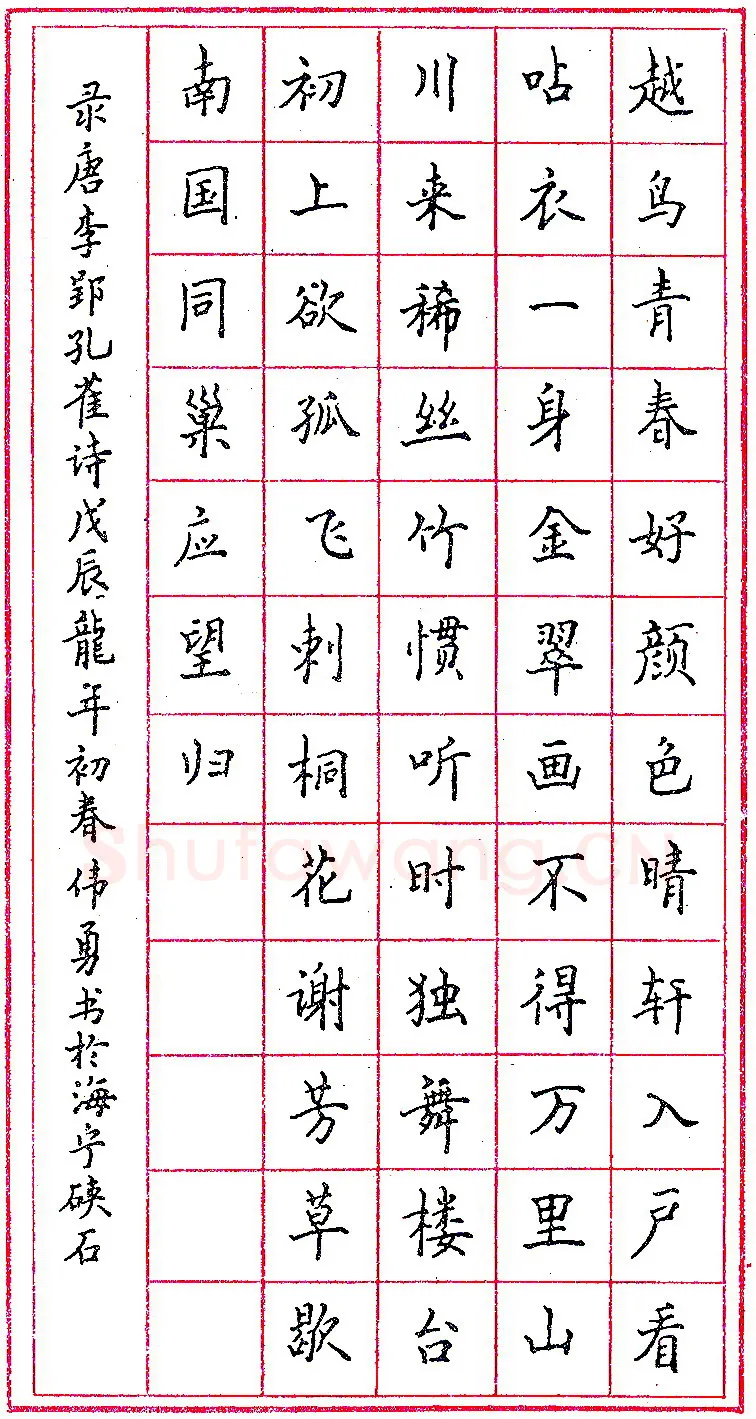 越鸟青春好颜色晴轩入户看
呫衣一身金翠画不得万里山
川来稀丝竹惯听时独舞楼台
初上欲孤飞刺桐花谢芳草歇
南国同巢应望归
录唐李郢孔雀诗戊辰龍年初春伟勇书於海宁硖石
Shufawang.CN